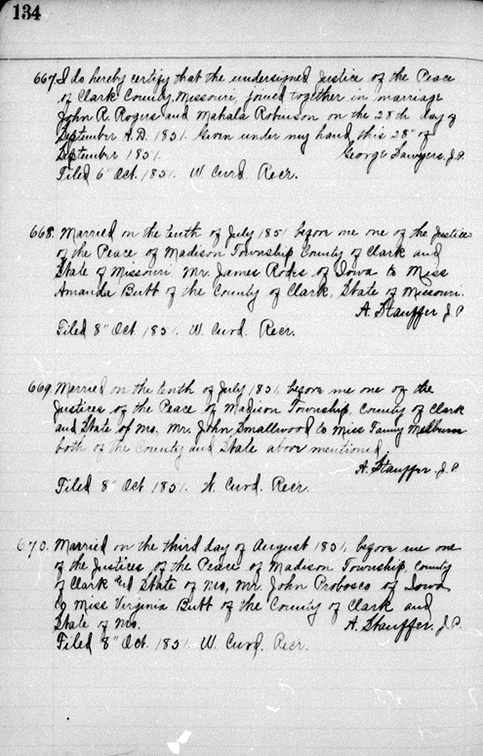 134
667. I do hereby certify that the undersigned Justice of the Peace
of Clark County, Missouri, joined together in marriage
John R. Rogers and Mahala Robinson on the 28th day of
September A.D. 1851. Given under my hand this 28" of
September 1851. George Sawyers, J.P.
Filed 6" Oct. 1851. W. Curd. Recr.
668. Married on the tenth of July 1851 before me one of the Justices
of the Peace of Madison Township County of Clark and
State of Missouri, Mr. James Rodes of Iowa to Miss
Amanda Butt of the County of Clark, State of Missouri.
A. Stauffer J.P.
Filed 8" Oct 1851. W. Curd. Recr.
669. Married on the tenth of July 1851 before me one of the
Justices of the Peace of Madison Township, County of Clark
and State of Mo. Mr. John Smallwood to Miss Fanny
both of the County and State above mentioned.
A. Stauffer. J.P.
Filed 8" Oct 1851. W. Curd. Recr.
670. Married on the third day of August 1851, before me one
of the Justices of the Peace of Madison Township, County
of Clark and State of Mo, Mr. John Probosco of Iowa
to Miss Virginia Butt of the County of Clark and
State of Mo. A. Stauffer. J.P.
Filed 8" Oct. 1851. W. Curd. Recr.